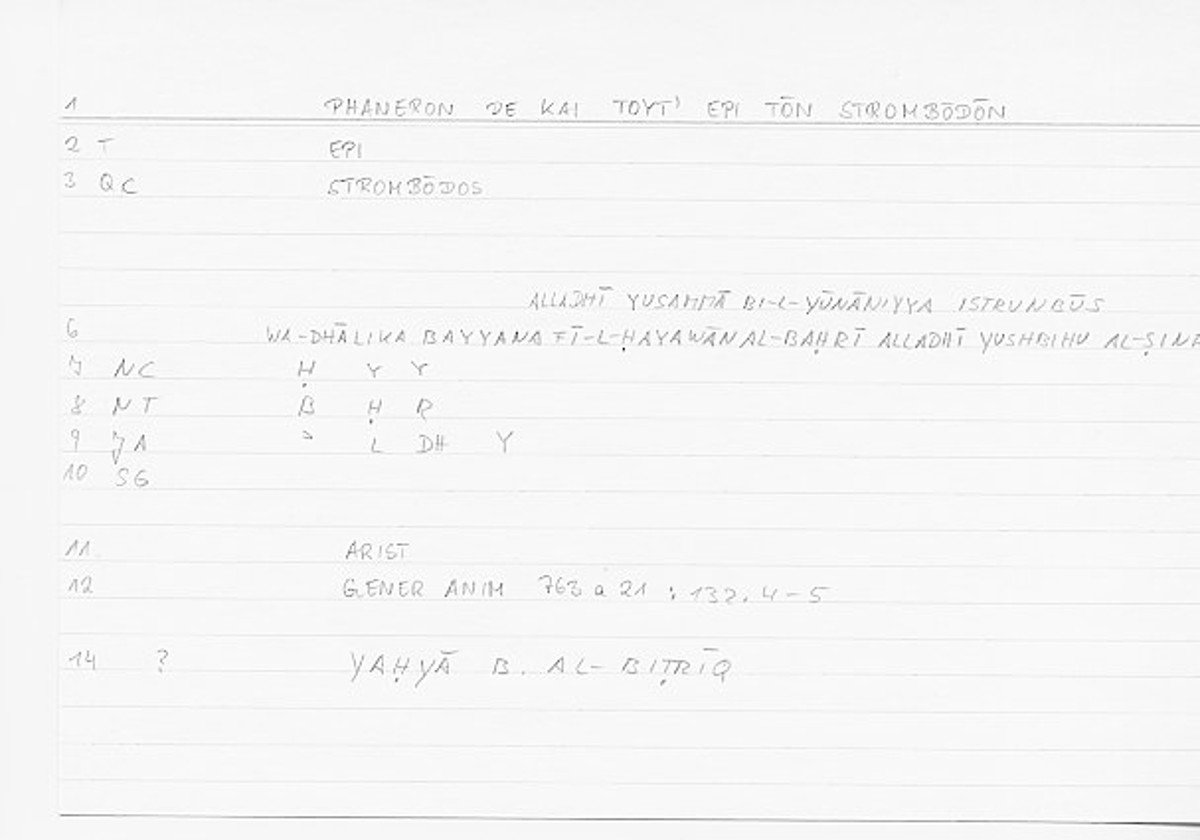 1 PHANERON DE KAI TOYT' EPI TŌN STROMBŌDŌN
2 T EPI
3 QC STROMBŌDOS
ALLADHĪ YUSAMMĀ BI-L-YŪNĀNIYYA ISTRUNBŪS
6 WA-DHĀLIKA BAYYANA FĪ-L-ḤAYAWĀN AL-BAḤRĪ ALLADHĪ YUSHBIHU AL-ṢINA
7 NC Ḥ Y Y
8 NT B Ḥ R
9 JA ʾ L DH Y
10 SG
11 ARIST
12 GENER ANIM 763 a 21 : 132.4-5
14 ? YAḤYĀ B. AL-BIṬRĪQ